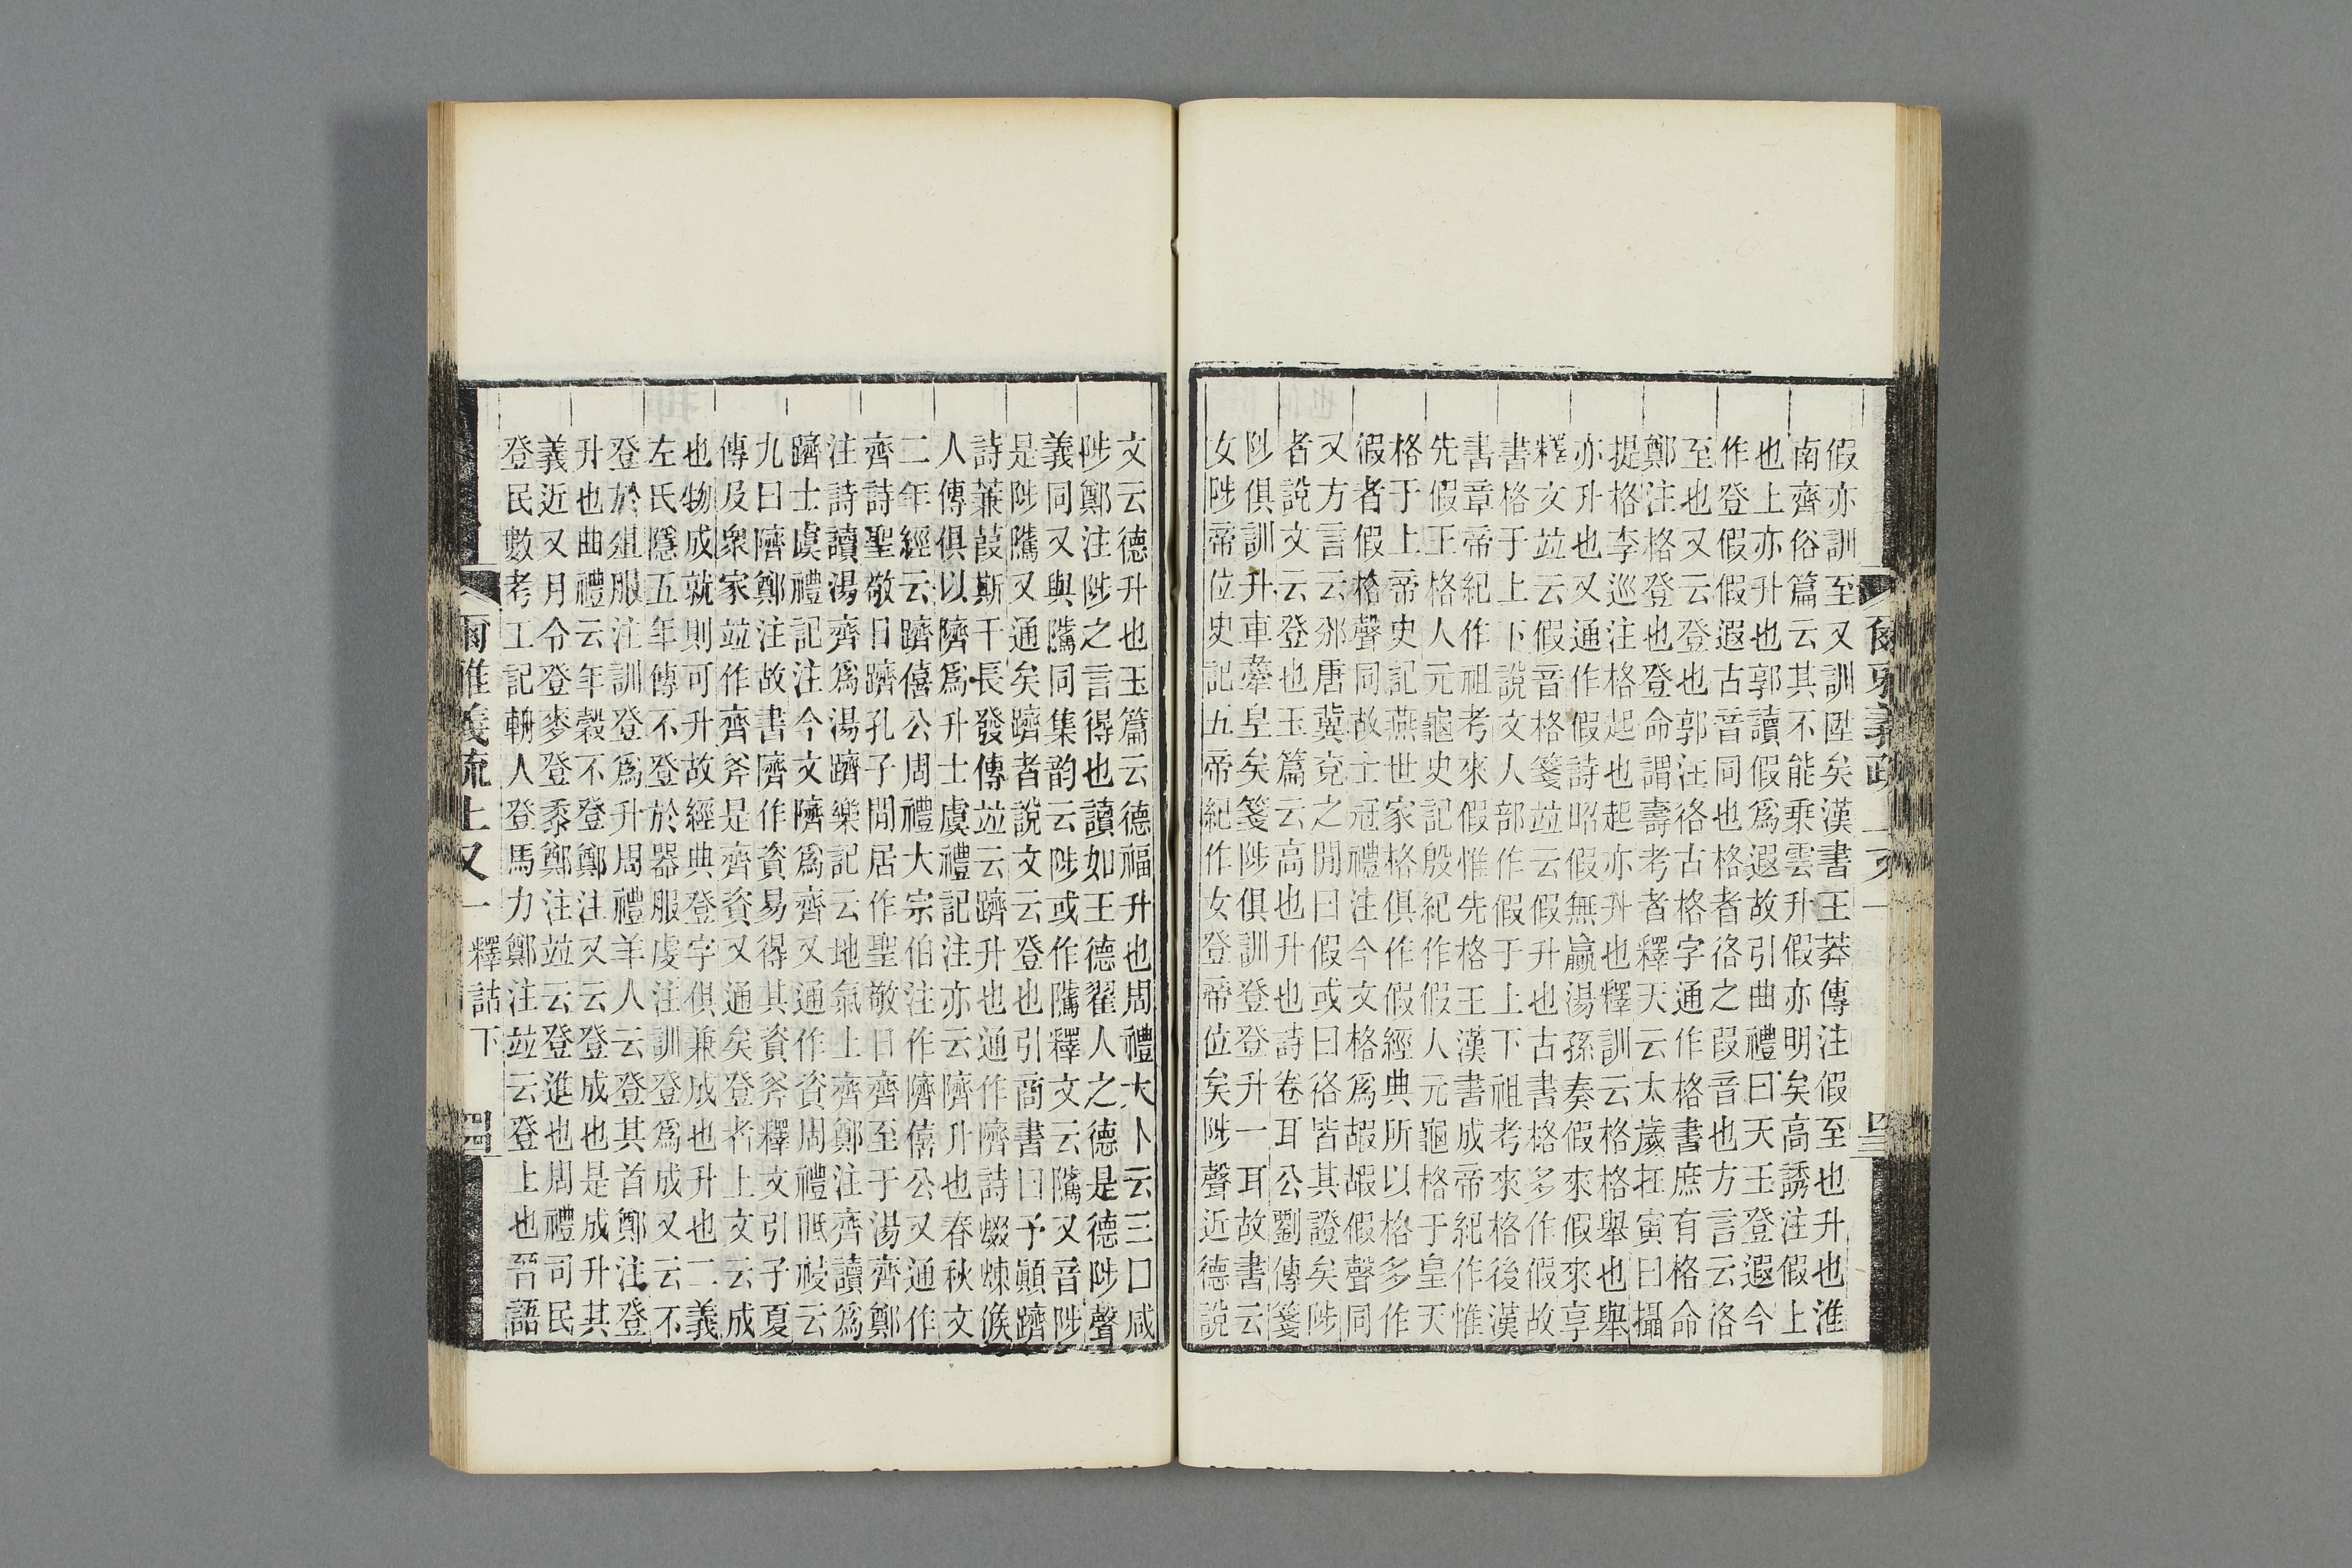 假亦訓至又訓陞矣漢書王莽傳注假至也升也淮
南齊俗篇云其不能乗雲升假亦明矣高誘注假上
也上亦升也郭讀假爲遐故引曲禮曰天王登遐今
作登假假遐古音同也格者𢓜之叚音也方言云𢓜
至也又云登也郭注𢓜古格字通作格書庶有格命
鄭注格登也登命謂壽考者釋天云太歲在寅曰攝
提格李巡注格起也起亦升也釋訓云格格舉也舉
亦升也又通作假詩昭假無贏湯孫奏假來假來享
釋文竝云假音格箋竝云假升也古書格多作假故
書格于上下說文人部作假于上下祖考來格後漢
書章帝紀作祖考來假惟先格王漢書成帝紀作惟
先假王格人元龜史記殷紀作假人元龜格于皇天
格于上帝史記燕世家格俱作假經典所以格多作
假者假格聲同故士冠禮注今文格爲嘏嘏假聲同
又方言云邠唐冀兗之閒曰假或曰𢓜皆其證矣陟
者說文云登也玉篇云高也升也詩卷耳公劉傳箋
陟俱訓升車舝皇矣箋陟俱訓登登升一耳故書云
女陟帝位史記五帝紀作女登帝位矣陟聲近德說
文云德升也玉篇云德福升也周禮大卜云三曰咸
陟鄭注陟之言得也讀如王德翟人之德是德陟聲
義同又與騭同集韵云陟或作騭釋文云騭又音陟
是陟騭又通矣躋者說文云登也引商書曰予顚躋
詩蒹葭斯干長發傳竝云躋升也通作隮詩蝃蝀候
人傳俱以隮爲升士虞禮記注亦云隮升也春秋文
二年經云躋僖公周禮大宗伯注作隮僖公又通作
齊詩聖敬日躋孔子閒居作聖敬日齊至于湯齊鄭
注詩讀湯齊爲湯躋樂記云地氣上齊鄭注齊讀爲
躋士虞禮記注今文隮爲齊又通作資周禮眡祲云
九曰隮鄭注故書隮作資易得其資斧釋文引子夏
傳及衆家竝作齊斧是齊資又通矣登者上文云成
也物成就則可升故經典登字俱兼成也升也二義
左氏隱五年傳不登於器服虔注訓登爲成又云不
登於俎服注訓登爲升周禮羊人云登其首鄭注登
升也曲禮云年穀不登鄭注又云登成也是成升其
義近又月令登麥登黍鄭注竝云登進也周禮司民
登民數考工記輈人登馬力鄭注竝云登上也晉語
爾雅義疏上又一 釋詁下